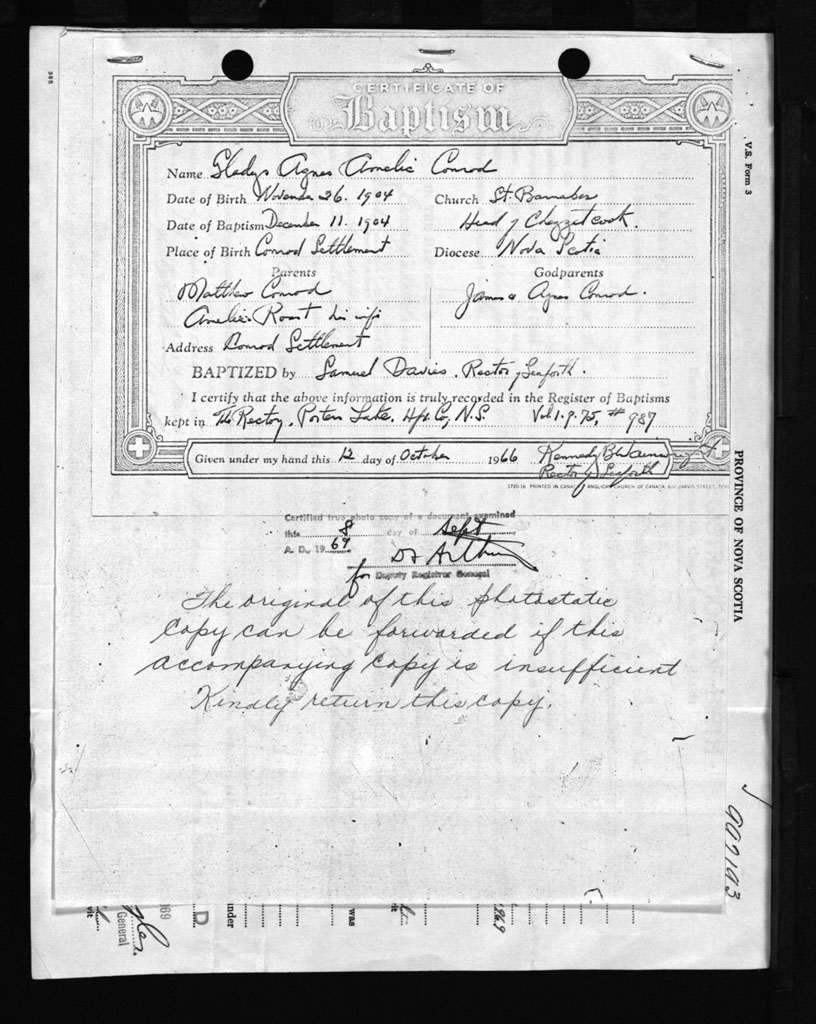 CERTIFICATE OF
Baptism
Name Gladys Agnes Amelia Conrod
Date of Birth November 26. 1904 Church St. Barnabas
Date of Baptism December 11. 1904 Head of Chezzetcook.
Place of Birth Conrod Settlement Diocese Nova Scotia
Parents Godparents
Matthew Conrod James & Agnes Conrod.
Amelia Roast his wife
Address Conrod Settlement
BAPTIZED by Samuel Davies. Rector of Seaforth.
I certify that the above information is truly recorded in the Register of Baptisms
kept in The Rectory, Porters Lake, Hfx. Co, N.S. Vol 1. p. 75, # 987
Given under my hand this 12 day of October 1966 Kennedy B Wainwright
Rector of Seaforth
PRINTED IN CANADA ANGLICAN CHURCH OF CANADA, JARVIS STREET,
Certified true photo copy of a document examined
this 8 day of Sept
A. D., 19 69
for Deputy Registrar General
The original of this photostatic
copy can be forwarded if this
accompanying copy is insufficient
Kindly return this copy.
V.S. Form 3
PROVINCE OF NOVA SCOTIA
907193
General
69
D
nder
was
1969